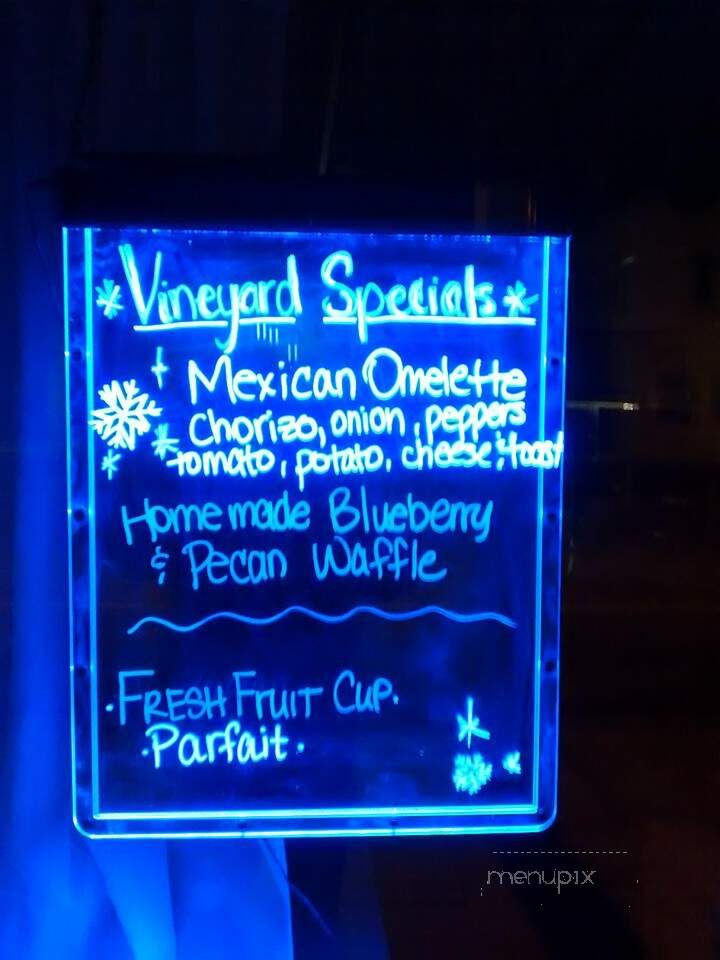 *Vineyard Specials*
Mexican Omelette
Chorizo, onion, peppers
tomato, potato, cheese, & toast
Homemade Blueberry
& Pecan Waffle
·FRESH FRUIT CUP·
·Parfait·
menupix